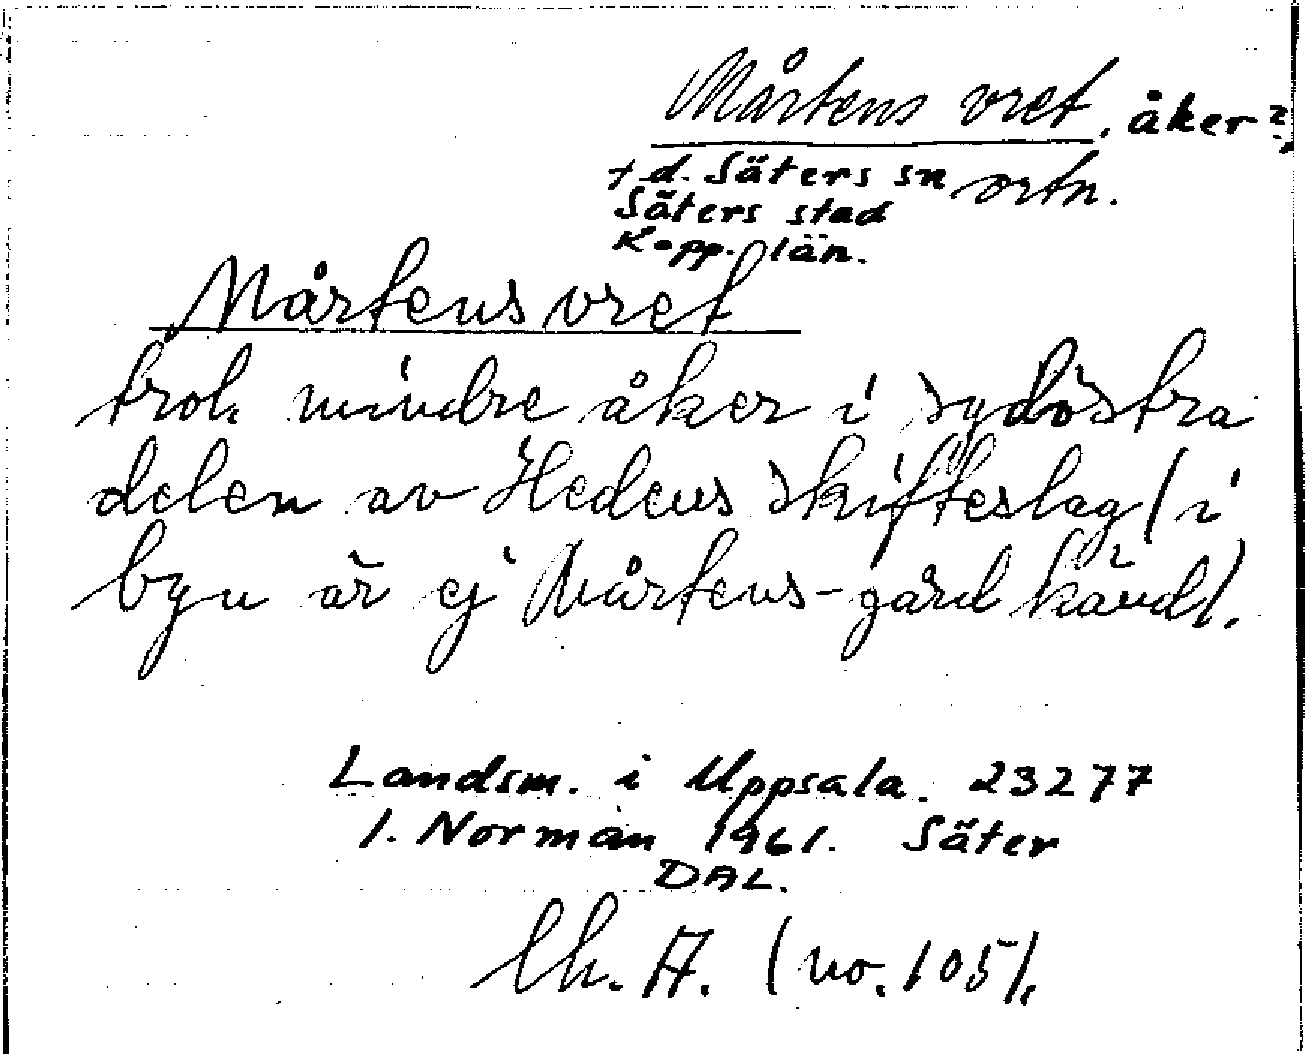 Mårtens vret, åker?,
f.d. Säters sn ortn.
Säters stad
Kopp. län.
Mårtens vret
trol. mindre åker i sydöstra
delen av Hedens skifteslag (i
byn är ej Mårtens-gård känd).
Landsm. i Uppsala. 23277
I. Norman 1961. Säter
DAL.
lh. A. (no. 105).